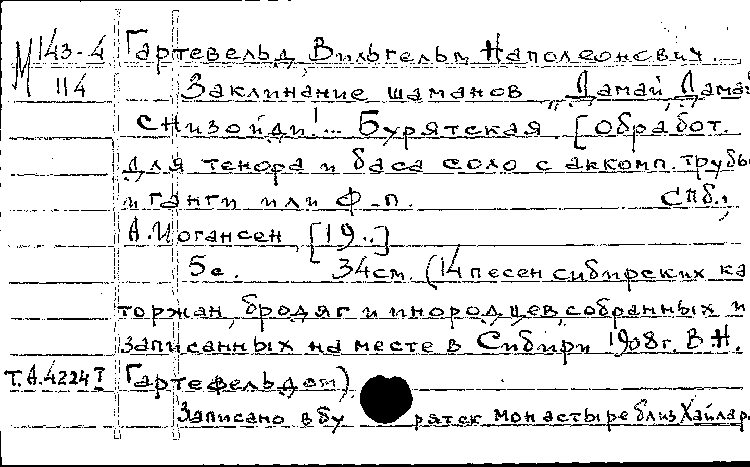 М 143-4 Гартевельд, Вильгельм Наполеонсвич.
114 Заклинание шаманов „Дамай, Дамай
снизойди!... Бурятская. [Обработ.
для тенора и баса соло с аккомп. трубы
и ганги или ф-п. СПб.,
А. Иогансен, [19..]
5с. 34см. (14 песен сибирских ка
торжан, бродяг и инородцев, собранных и
записанных на месте в Сибири 1908г. В.Н.
Т.А.4224 I Гартефельдом)
Записано в бу рятск монастыре близ Хайлар.